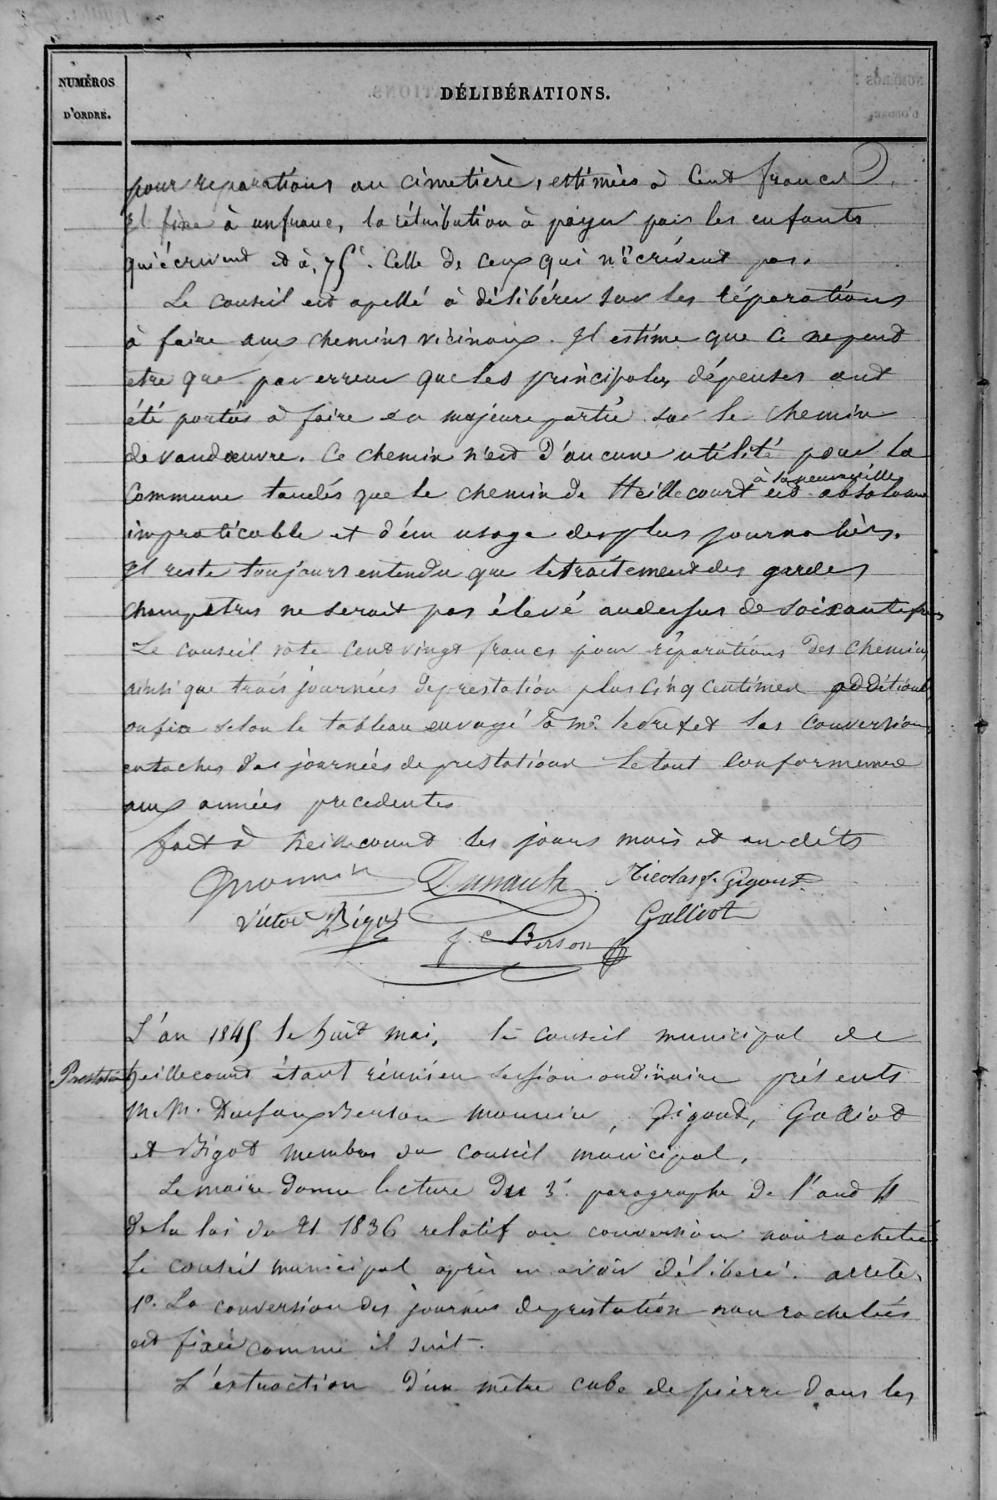 NUMÉROS
D'ORDRE.
DÉLIBÉRATIONS.
pour reparations au cimetière, estimées à Cent francs
Il fixe à un franc, la rétribution à payer par les enfants
qui écrivent et à, 75c. Celle de ceux qui n'écrivent pas.
Le conseil est apellé à délibérer sur les réparations
à faire aux chemins vicinaux. Il estime que ce ne peut
etre que par erreur que les principales dépenses ont
été portées à faire en majeure partie sur le chemin
de vandœuvre. Ce chemin n'est d'aucune utilité pour la
à laneuveville
Commune tandis que le chemin de Heillecourt est absolume
impraticable et d'un usage des plus journaliers.
Il reste toujours entendu que le traitement des gardes
champetres ne serait pas élevé audessus de soixante frs
Le conseil vote Cent vingt francs pour réparations des chemins
ainsi que trois journées de prestation plus Cinq centimes additionels
selon le tableau envoyé à Mr. le Prefet les conversions
en taches des journées de prestations le tout Conformement
aux années precedentes
fait à heillecourt les jours mois et an dits
Nicolas Gigout
Victor Bigot
Galliot
J. C Berson
L'an 1845 le huit mai, le conseil municipal de
Prestation
heillecourt étant réuni en session ordinaire présents
M.M. Berson Mounier, Gigout, Galliot
et Bigot membres du conseil municipal,
Le maire donne lecture du 3e. paragraphe de l'art 4
de la loi du 21 1836 relatif au conversion non rachetées
Le conseil municipal après en avoir délibéré. arrete,
1o. La conversion des journées de prestation non rachetées
est fixée comme il suit.
L'extraction d'un mètre cube de pierre dans les